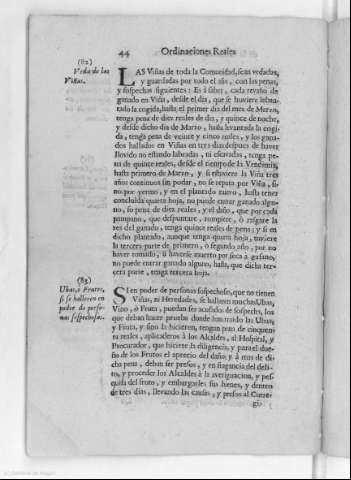 44 Ordinaciones Reales
(82)
Veda de las
Viñas.
LAS Viñas de toda la Comunidad, sean vedadas,
y guardadas por todo el año, con las penas,
y sospechas siguientes: Es à saber, cada rebaño de
ganado en Viña, desde el dia, que se huviere levan-
tado la cogida, hasta el primer dia del mes de Marzo,
tenga pena de diez reales de dia, y quince de noche,
y desde dicho dia de Marzo, hasta levantada la cogi-
da, tenga pena de veinte y cinco reales, y los gana-
dos hallados en Viñas en tres dias despues de haver
llovido no estando labradas, ni escavadas, tenga pe-
na de quince reales, desde el tiempo de la Vendemia,
hasta primero de Marzo, y si estuviere la Viña tres
años continuos sin podar, no se reputa por Viña, si-
no por yermo, y en el plantado nuevo, hasta tener
concluida quarta hoja, no puede entrar ganado algu-
no, so pena de diez reales, y el daño, que por cada
pimpano, que despuntare, rompiere, ò resgare la
res del ganado, tenga quince reales de pena; y si en
dicho plantado, aunque tenga quarta hoja, tuviere
la tercera parte de primero, ò segundo año, por no
haver tomado, ù haverse muerto por seca à gusano,
no puede entrar ganado alguno, hasta, que dicha ter-
cera parte, tenga tercera hoja.
(83)
Ubas, ò Frutos,
si se hallaren en
poder de perso-
nas sospechosas.
SI en poder de personas sospechosas, que no tienen
Viñas, ni Heredades, se hallaren muchas Ubas,
Vino, ò Fruta, puedan ser acusados de sospecha, los
que deban hazer prueba donde han traido las Ubas,
y Fruta, y sino la hicieren, tengan pena de cinquen-
ta reales, aplicaderos à los Alcaldes, al Hospital, y
Procurador, que hiciere la diligencia, y para el due-
ño de los Frutos el aprecio del daño, y à mas de di-
cha pena, deban ser presos, y en fragancia del deli-
to, y proceder los Alcaldes à la averiguacion, y pes-
quisa del fruto, y embargarles sus bienes, y dentro
de tres dias, llevando las causas, y presos al Corre-
gi-